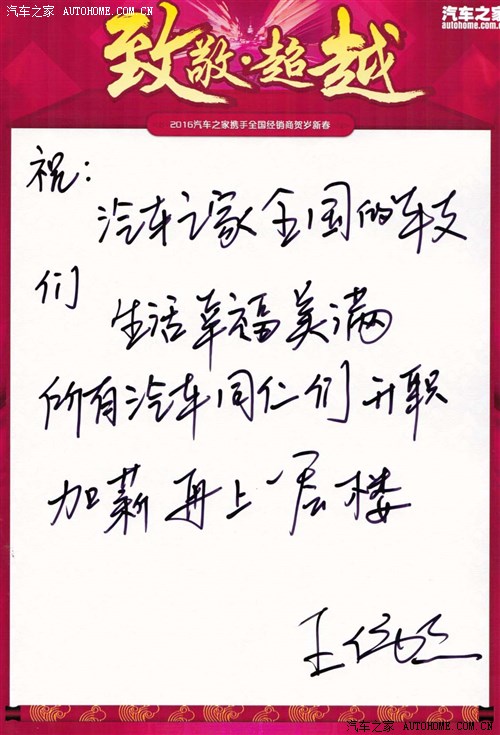 汽车之家 AUTOHOME.COM.CN
汽车之家
autohome.com.cn
致敬·超越
2016汽车之家携手全国经销商贺岁新春
祝：
汽车之家全国的车友
们
生活幸福美满
所有汽车同仁们升职
加薪再上一层楼
王
汽车之家 AUTOHOME.COM.CN